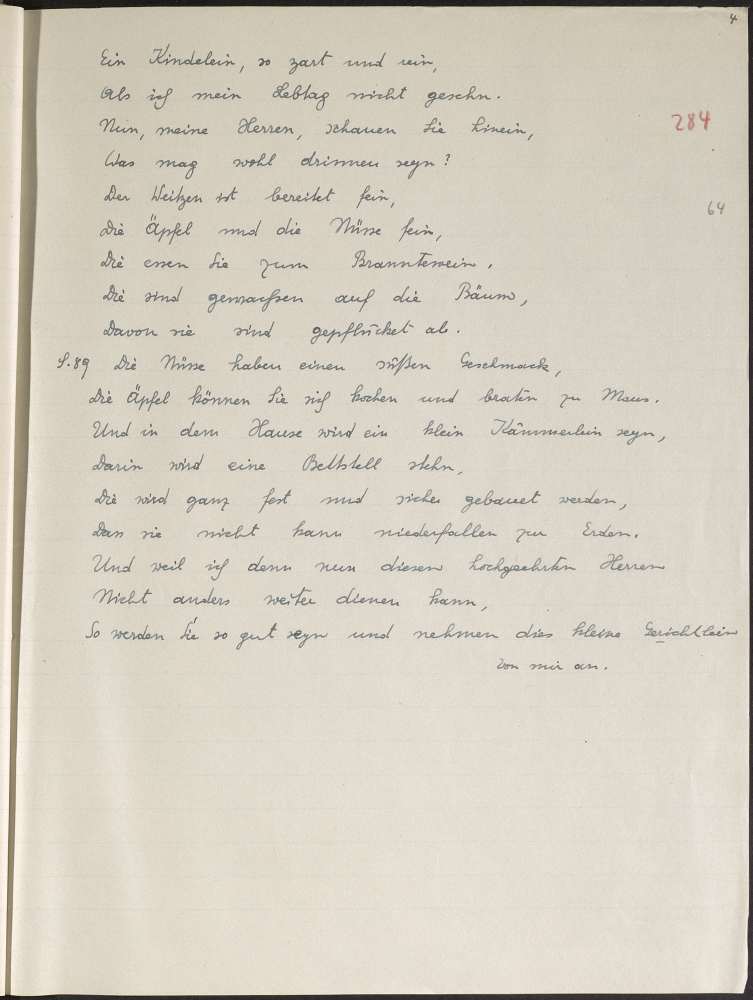 4
Ein Kindelein, so zart und rein,
Als ich mein Lebtag nicht gesehn.
284
Nun, meine Herren, schauen Sie hinein,
Was mag wohl drinnen seyn?
Der Weitzen ist bereitet fein,
64
Die Äpfel und die Nüsse fein,
Die essen Sie zum Branntewein.
Die sind gewachsen auf die Bäum,
Davon sie sind gepflücket ab.
S. 89 Die Nüsse haben einen süßen Geschmack,
Die Äpfel können Sie sich kochen und braten zu Maus.
Und in dem Hause wird ein klein Kämmerlein seyn,
Darin wird eine Bettstell stehn,
Die wird ganz fest und sicher gebauet werden,
Dass sie nicht kann niederfallen zur Erden.
Und weil ich denn nun diesen hochgeehrten Herren
Nicht anders weiter dienen kann,
So werden Sie so gut seyn und nehmen dies kleine Gerichtlein
von mir an.